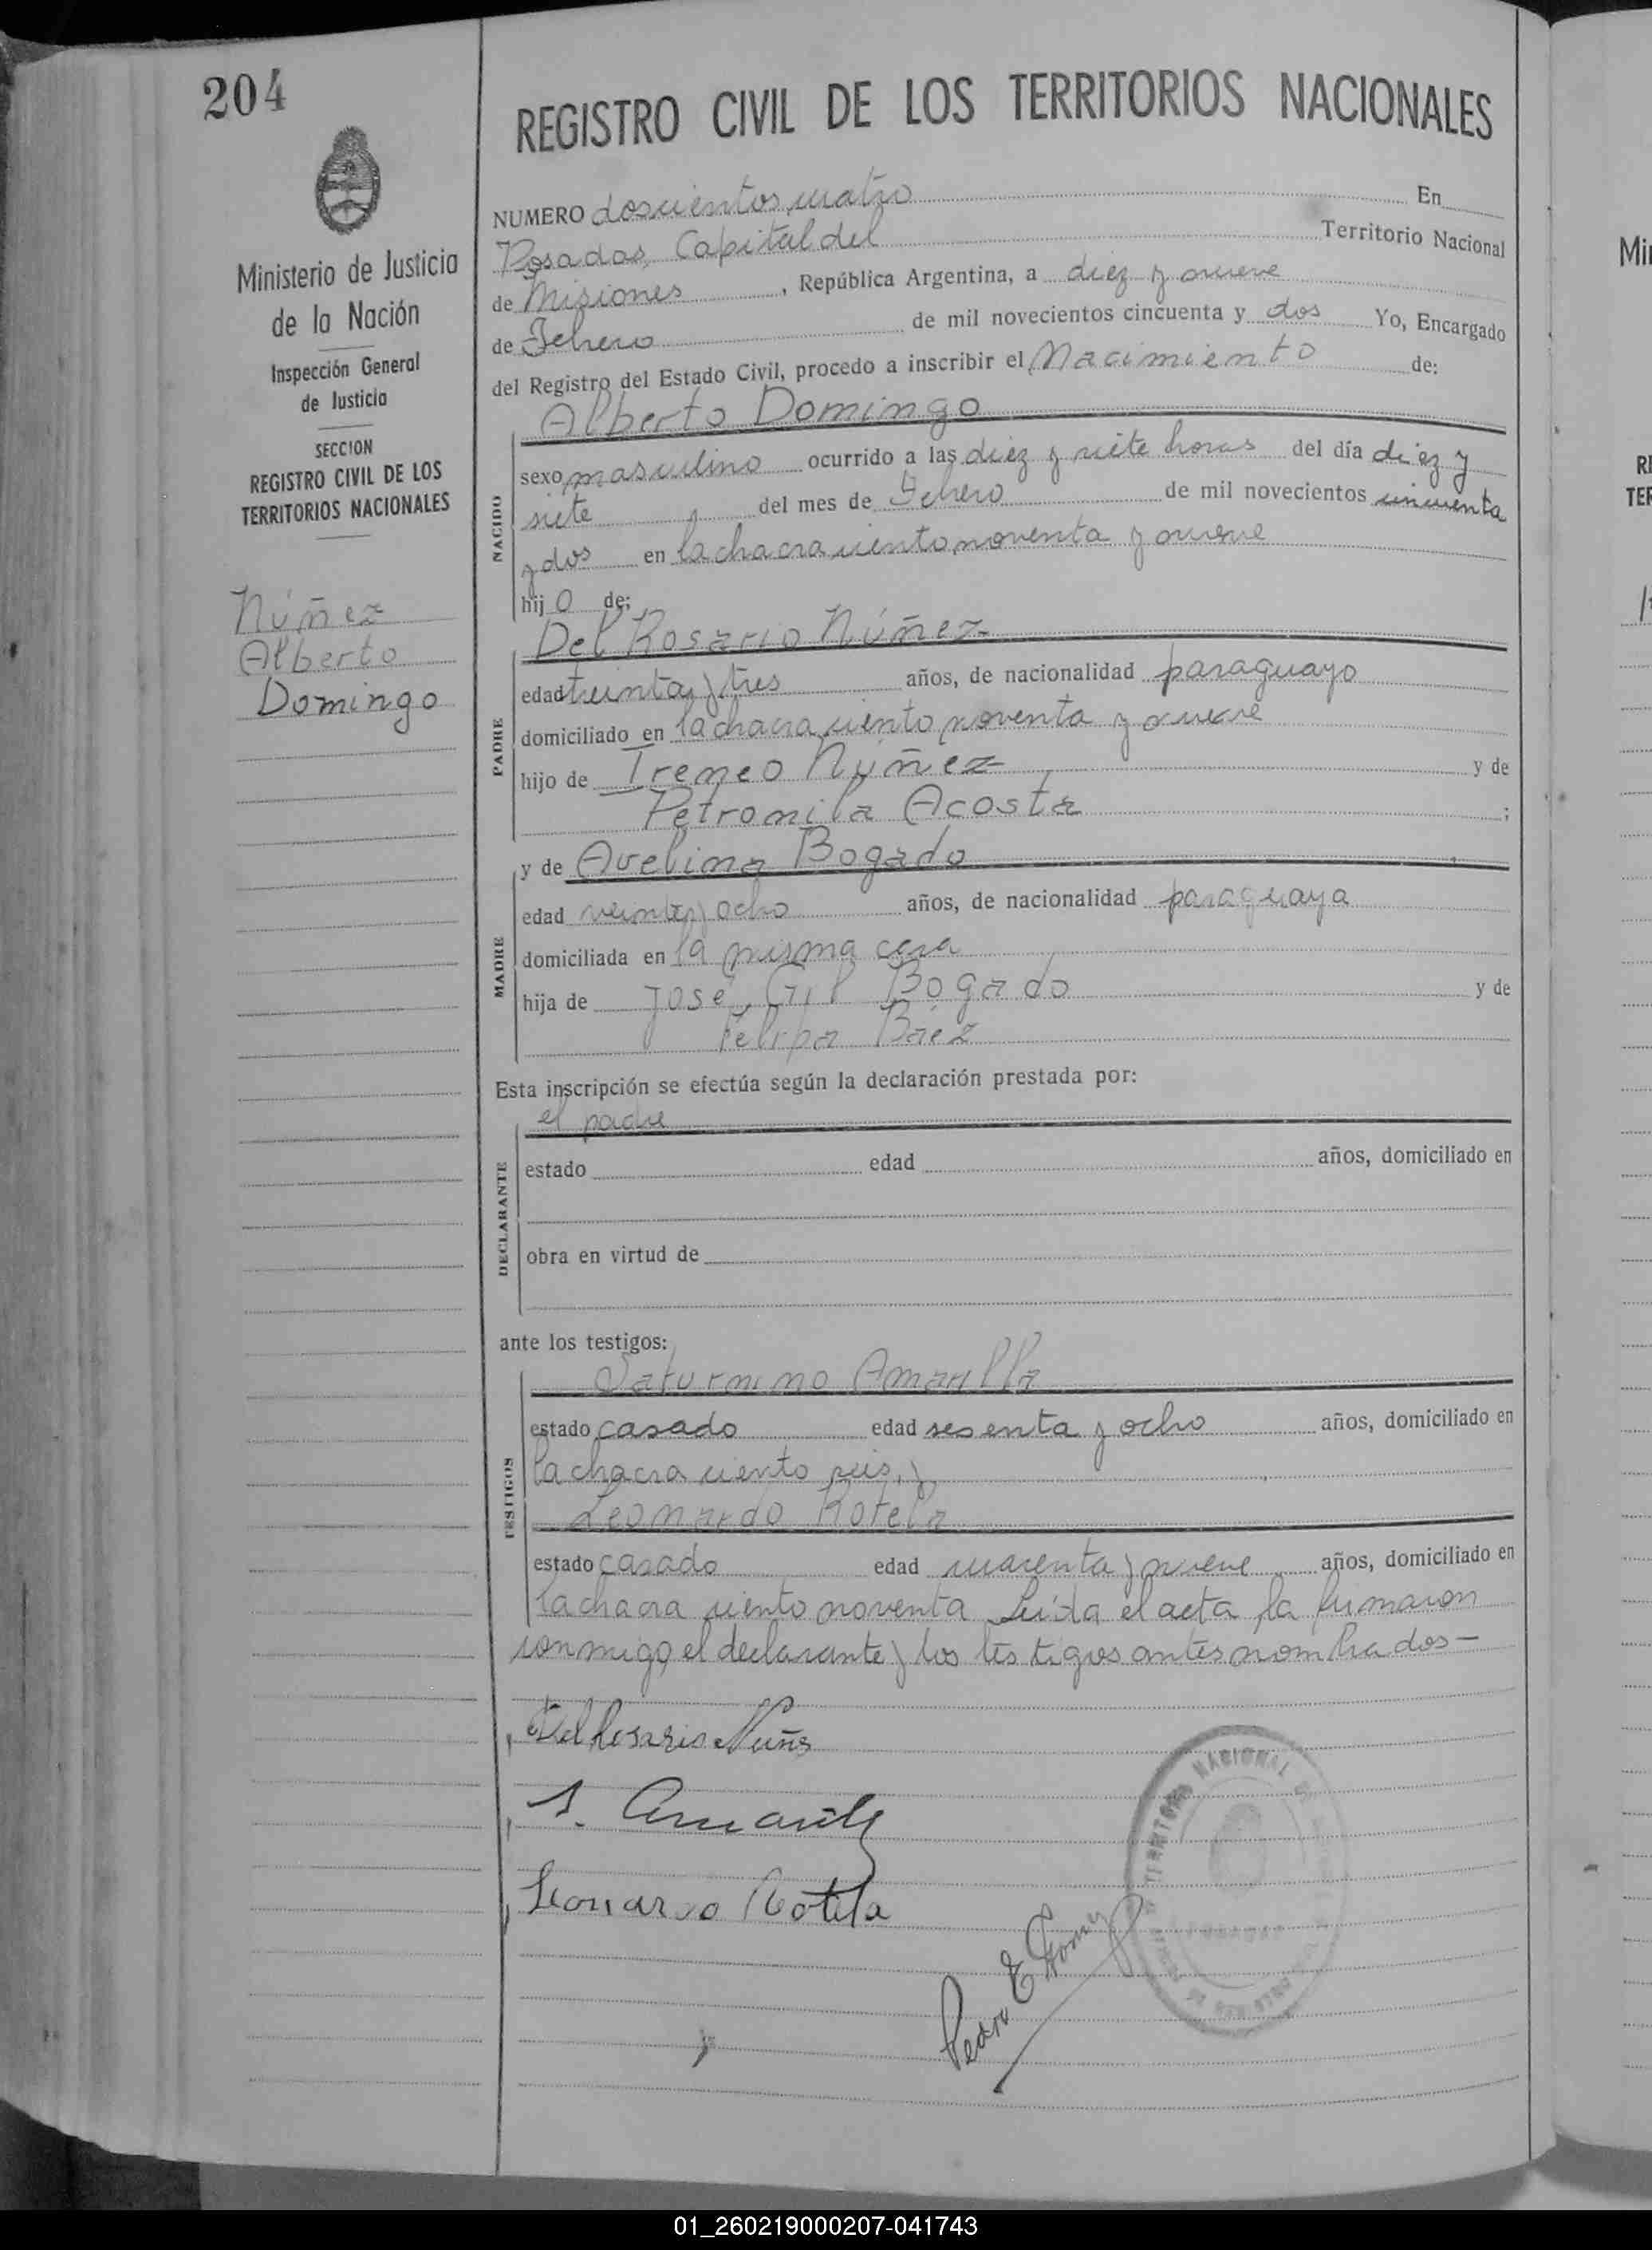 204
Ministerio de Justicia
de la Nación
Inspección General
de Justicia
SECCION
REGISTRO CIVIL DE LOS
TERRITORIOS NACIONALES
Núñez
Alberto
Domingo
REGISTRO CIVIL DE LOS TERRITORIOS NACIONALES
NUMERO doscientos cuatro En
Posadas, Capital del Territorio Nacional
de Misiones, República Argentina, a diez y nueve
de Febrero de mil novecientos cincuenta y dos Yo, Encargado
del Registro del Estado Civil, procedo a inscribir el Nacimiento de:
Alberto Domingo
NACIDO
sexo masculino ocurrido a las diez y siete horas del día diez y
siete del mes de Febrero de mil novecientos cincuenta
y dos en la chacra ciento noventa y nueve
hijo de:
Del Rosario Núñez
PADRE
edad treinta y tres años, de nacionalidad paraguayo
domiciliado en la chacra ciento noventa y nueve
hijo de Ireneo Núñez y de
Petronila Acosta ;
y de Avelina Bogado
MADRE
edad veinte y ocho años, de nacionalidad paraguaya
domiciliada en la misma casa
hija de José Gil Bogado y de
Felipa Báez
Esta inscripción se efectúa según la declaración prestada por:
el padre
DECLARANTE
estado edad años, domiciliado en
obra en virtud de
ante los testigos:
Saturnino Amarilla
TESTIGOS
estado casado edad sesenta y ocho años, domiciliado en
la chacra ciento seis, y
Leonardo Rotela
estado casado edad cuarenta y nueve años, domiciliado en
la chacra ciento noventa Leída el acta, la firmaron
conmigo, el declarante y los testigos antes nombrados—
Del Rosario Núñez
S. Amarilla
Leonardo Rotela
Pedro E.
01_260219000207-041743